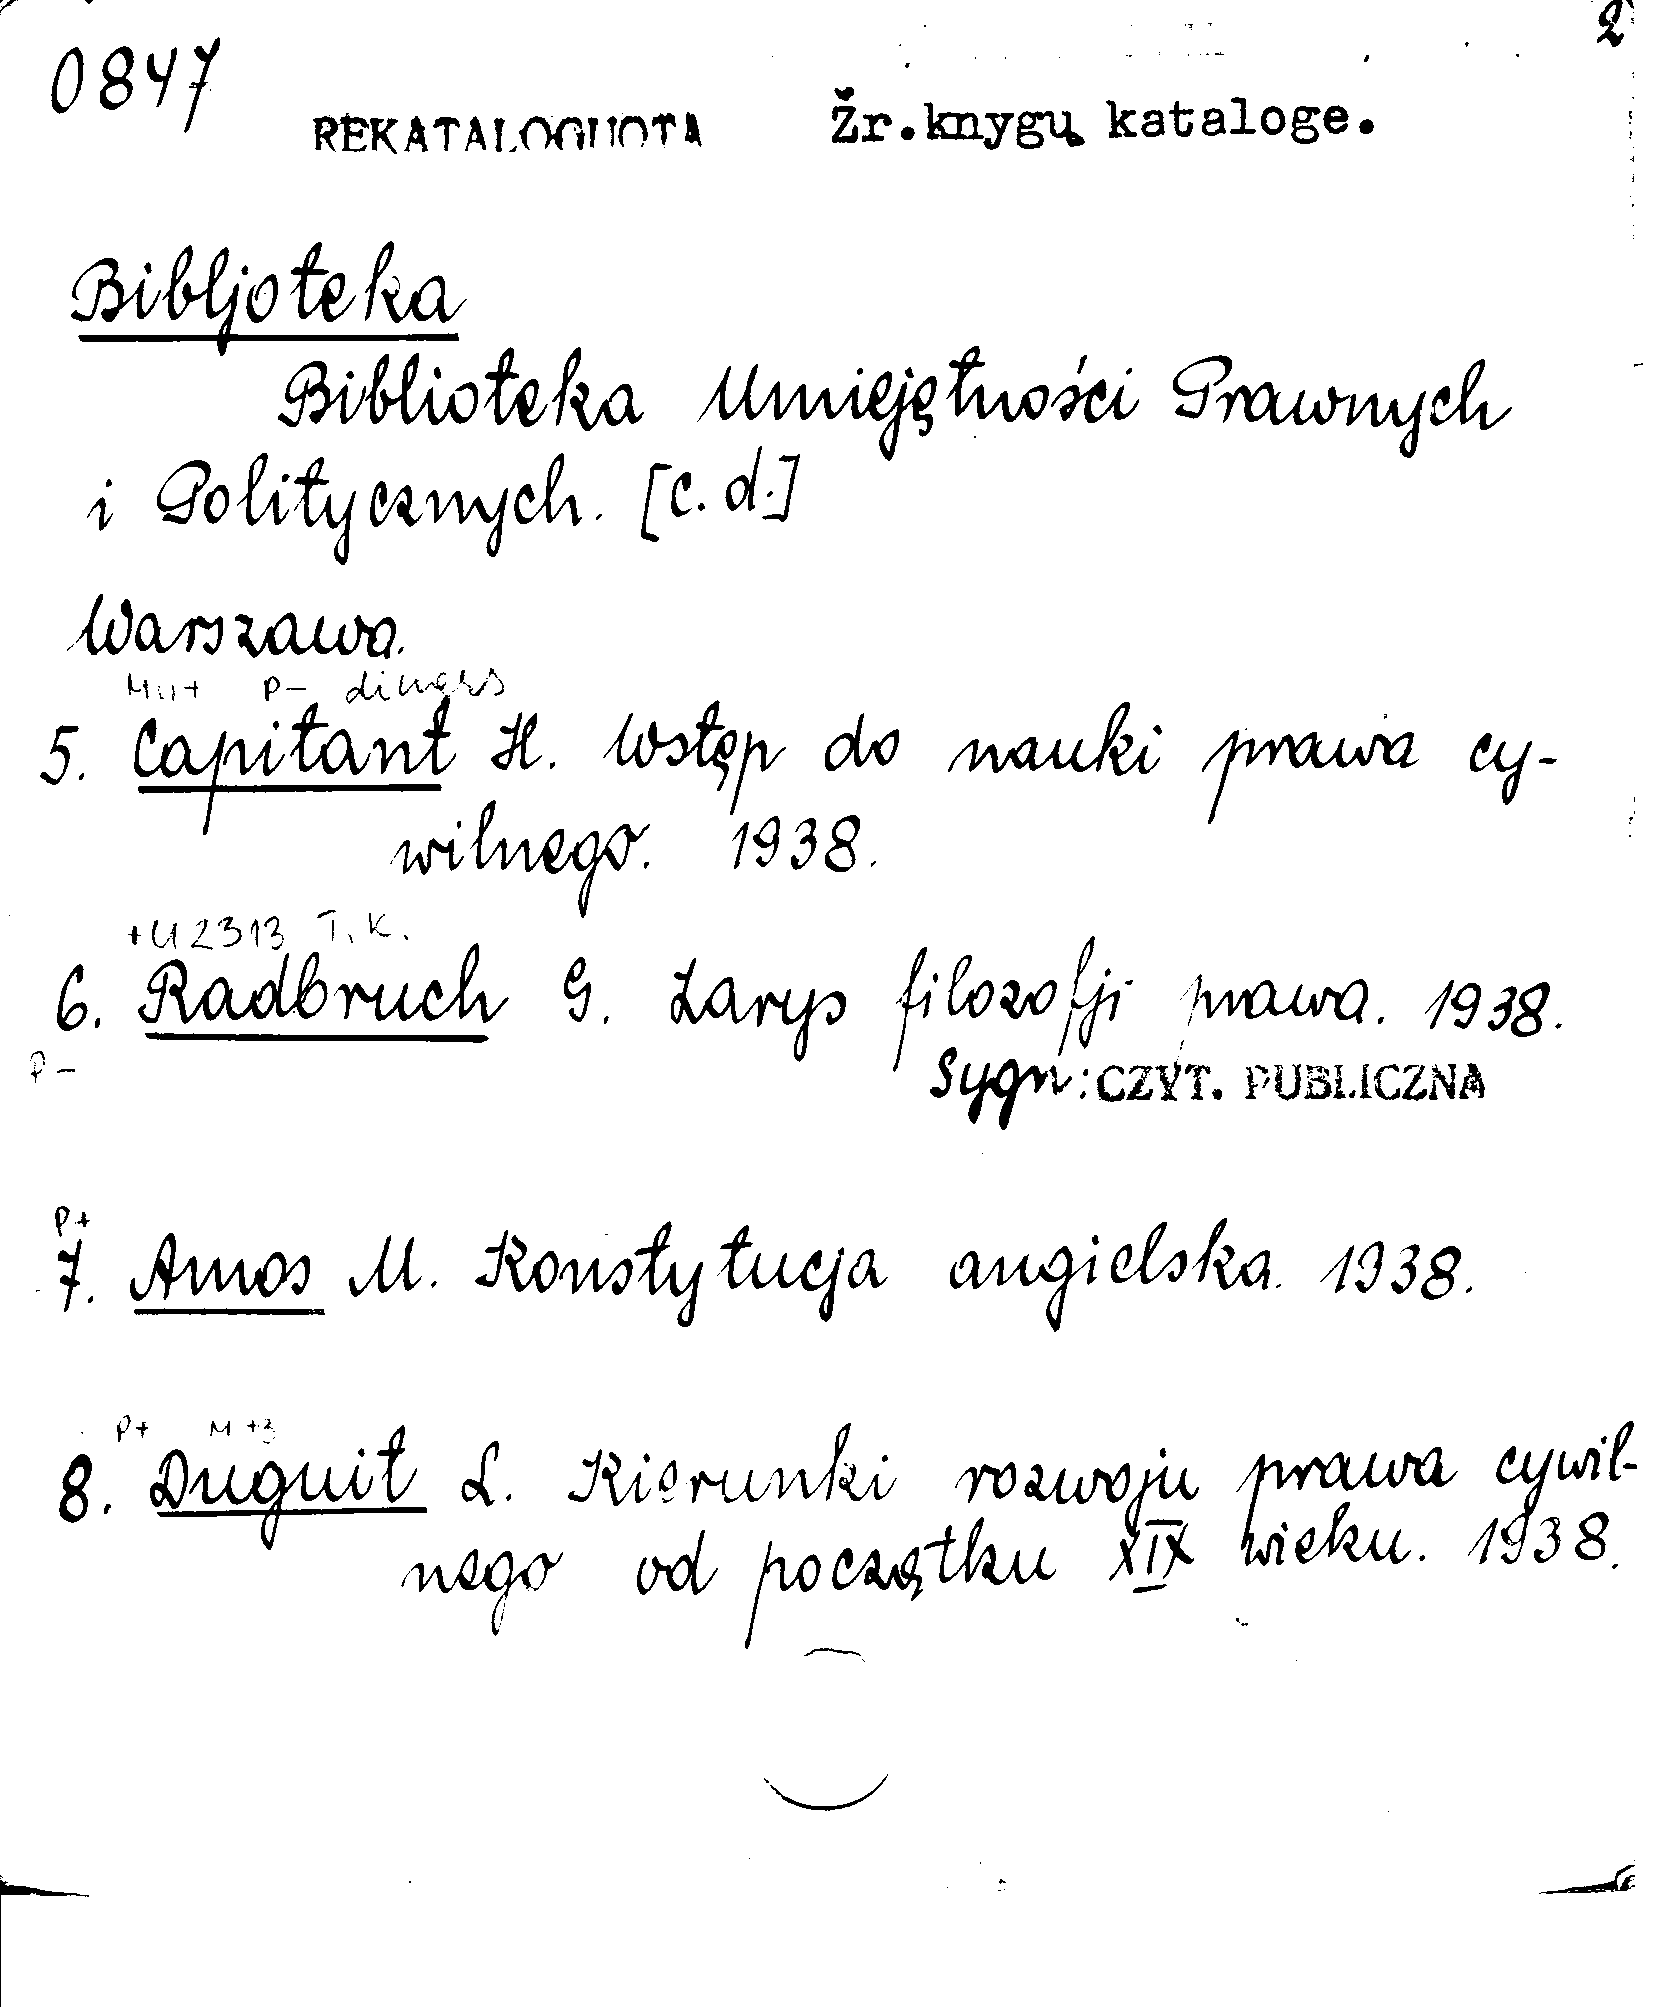 2
0847
REKATALOGUOTA Žr.knygų kataloge.
Bibljoteka
Biblioteka Umiejętności Prawnych
i Politycznych. [c.d.]
Warszawa.
P- dingęs
5. Capitant H. Wstęp do nauki prawa cy-
wilnego. 1938.
+U2313 T.K.
6. Radbruch G. Zarys filozofji prawa. 1938.
P-
Sygn: CZYT. PUBLICZNA
P+
7. Amos M. Konstytucja angielska. 1938.
P+ M+3
8. Duguit L. Kierunki rozwoju prawa cywil-
nego od początku XIX wieku. 1938.